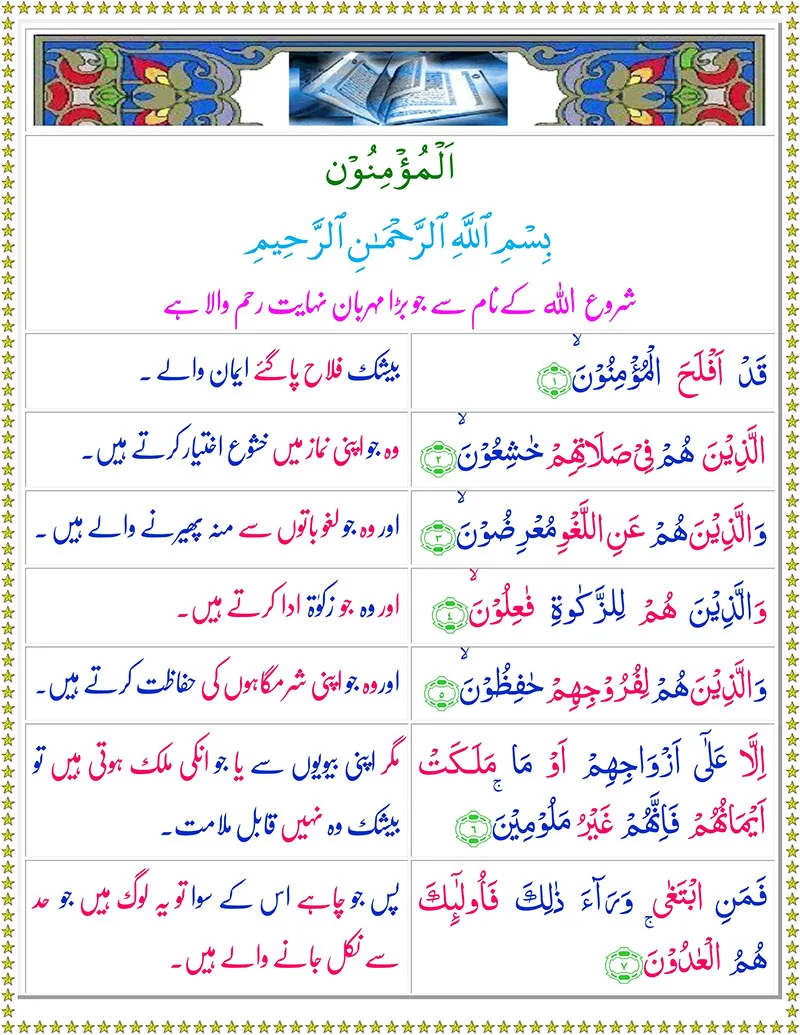 اَلْمُؤْمِنُوْن
بِسْمِ ٱللَّهِ ٱلرَّحْمَـٰنِ ٱلرَّحِيمِ
شروع اللہ کے نام سے جو بڑا مہربان نہایت رحم والا ہے
قَدْ اَفْلَحَ الْمُؤْمِنُوْنَ ۙ ۱
بیشک فلاح پاگئے ایمان والے ۔
الَّذِيْنَ هُمْ فِيْ صَلَاتِهِمْ خٰشِعُوْنَ ۙ ۲
وہ جو اپنی نماز میں خشوع اختیار کرتے ہیں۔
وَالَّذِيْنَ هُمْ عَنِ اللَّغْوِ مُعْرِضُوْنَ ۙ ۳
اور وہ جو لغو باتوں سے منہ پھیرنے والے ہیں ۔
وَالَّذِيْنَ هُمْ لِلزَّكٰوةِ فٰعِلُوْنَ ۙ ٤
اور وہ جو زکوٰۃ ادا کرتے ہیں۔
وَالَّذِيْنَ هُمْ لِفُرُوْجِهِمْ حٰفِظُوْنَ ۙ ۵
اور وہ جو اپنی شرمگاہوں کی حفاظت کرتے ہیں۔
اِلَّا عَلٰٓى اَزْوَاجِهِمْ اَوْ مَا مَلَـكَتْ
اَيْمَانُهُمْ فَاِنَّهُمْ غَيْرُ مَلُوْمِيْنَ ۚ ٦
مگر اپنی بیویوں سے یا جو انکی ملک ہوتی ہیں تو
بیشک وہ نہیں قابل ملامت۔
فَمَنِ ابْتَغٰى وَرَآءَ ذٰلِكَ فَاُولٰٓئِكَ
هُمُ الْعٰدُوْنَ ۚ ۷
پس جو چاہے اس کے سوا تو یہ لوگ ہیں جو حد
سے نکل جانے والے ہیں۔